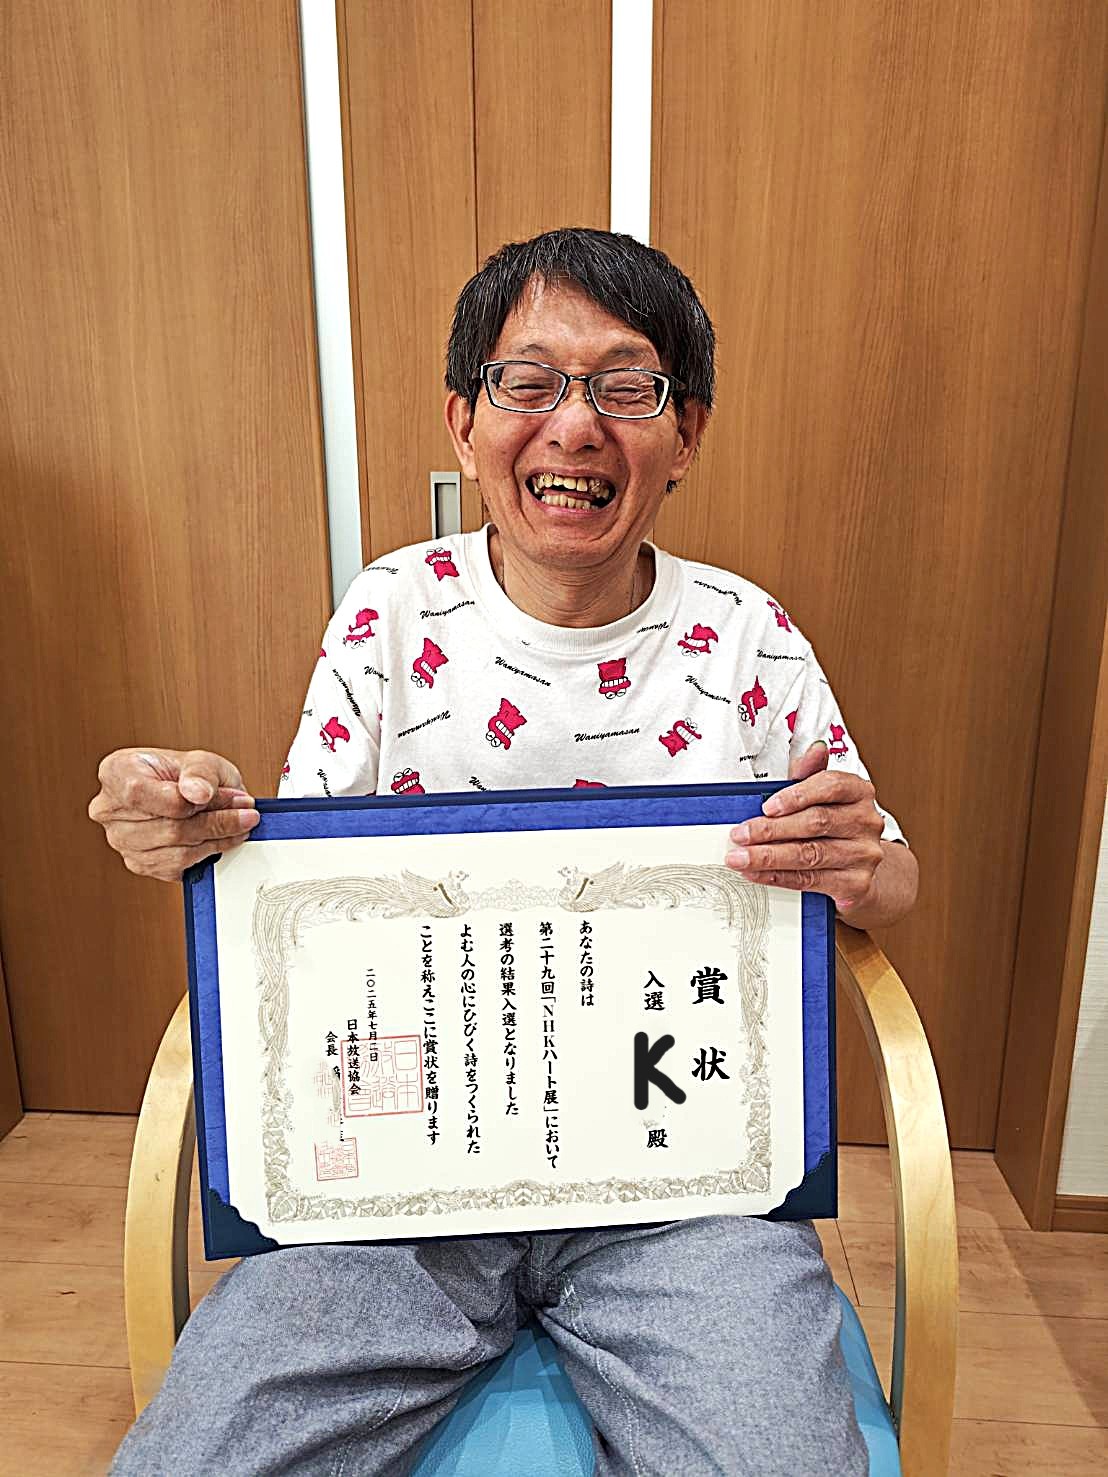 賞状
入選
K
殿
あなたの詩は
第二十九回「NHKハート展」において
選考の結果入選となりました
よむ人の心にひびく詩をつくられた
ことを称えここに賞状を贈ります
二〇二五年七月二日
日本放送協会
会長
Waniyamasan
Waniyamasan
Waniyamasan
Waniyamasan
Waniyamasan
Waniyamasan